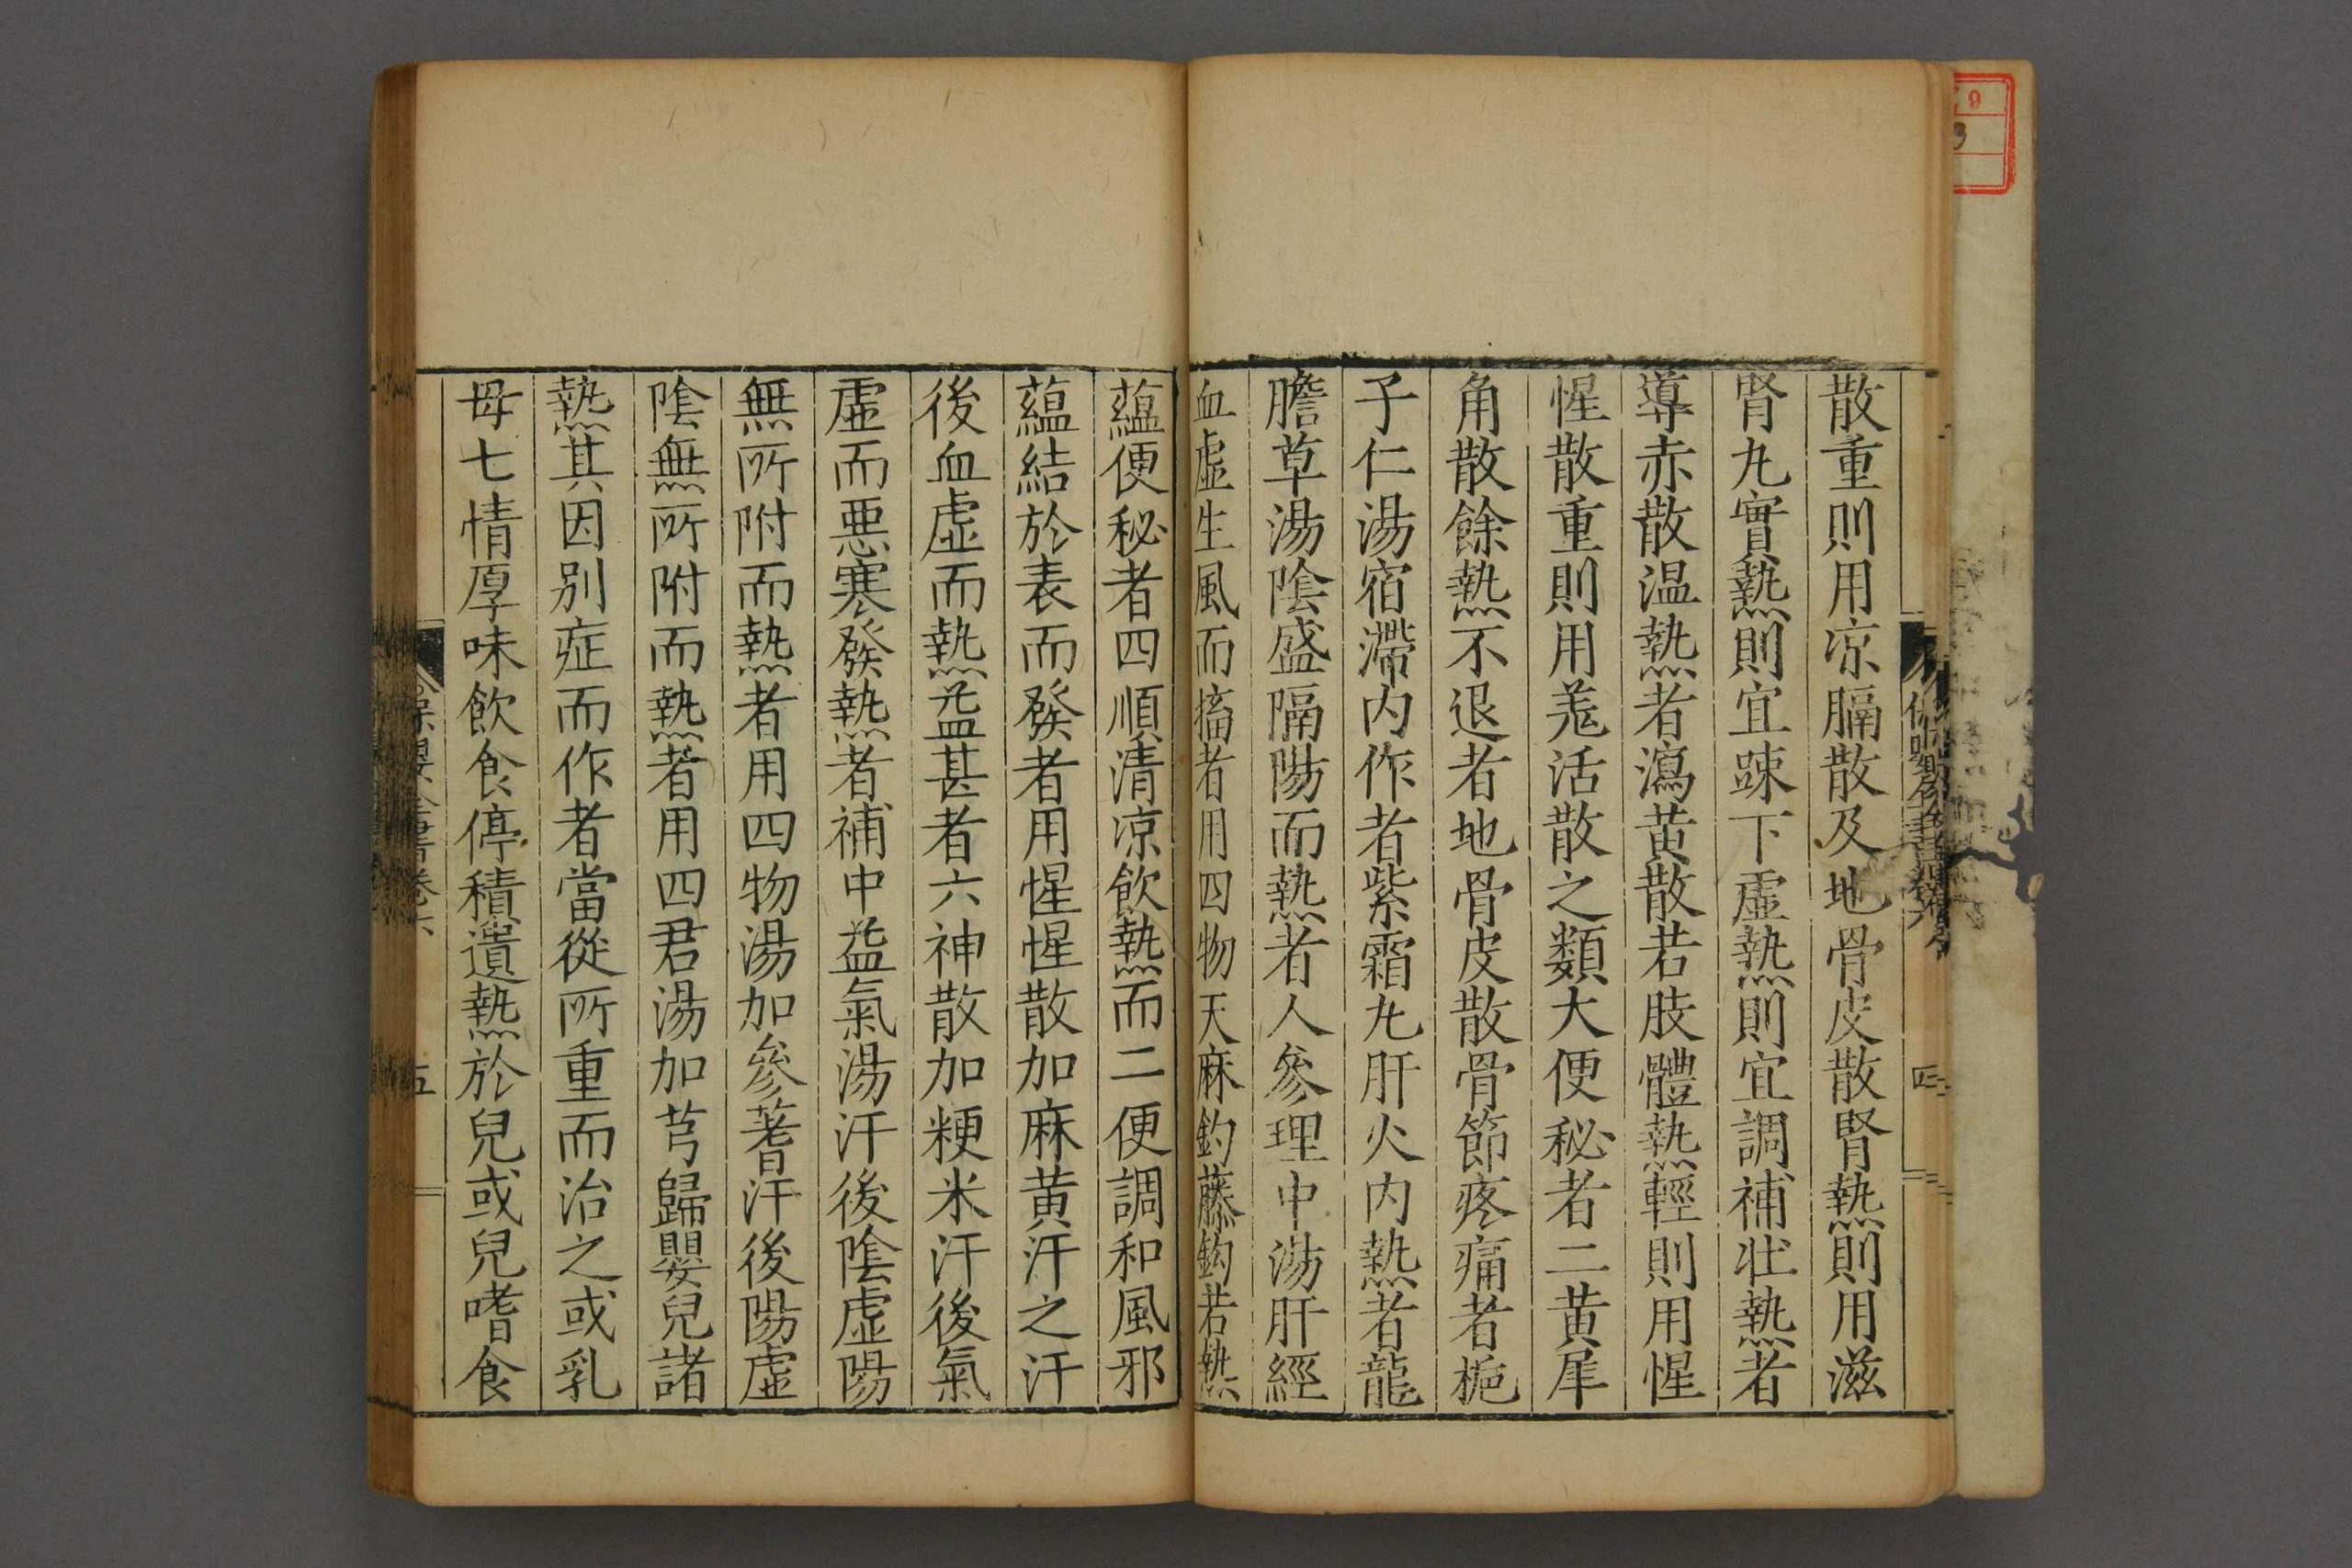 散重則用凉膈散及地骨皮散腎熱則用滋
腎丸實熱則宜踈下虛熱則宜調補壯熱者
導赤散温熱者瀉黃散若肢體熱輕則用惺
惺散重則用羗活散之類大便秘者二黃犀
角散餘熱不退者地骨皮散骨節疼痛者梔
子仁湯宿滯内作者紫霜丸肝火内熱者龍
膽草湯陰盛隔陽而熱者人參理中湯肝經
血虛生風而搐者用四物天麻釣藤鈎若熱
蘊便秘者四順清凉飲熱而二便調和風邪
蘊結於表而發者用惺惺散加麻黃汗之汗
後血虛而熱益甚者六神散加粳米汗後氣
虛而惡寒發熱者補中益氣湯汗後陰虛陽
無所附而熱者用四物湯加參蓍汗後陽虛
陰無所附而熱者用四君湯加芎歸嬰兒諸
熱其因别症而作者當從所重而治之或乳
母七情厚味飲食停積遺熱於兒或兒嗜食
保嬰全書卷六
五